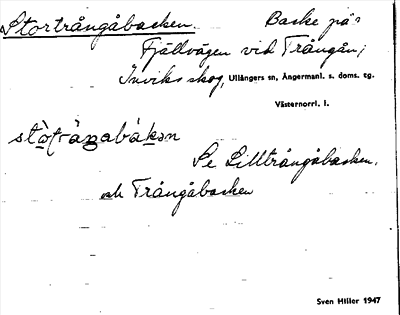 Stortrångåbacken. Backe på
Fjällvägen vid Trångån,
Inviks skog, Ullångers sn, Ångermanl. s. doms. tg.
Västernorrl. l.
stò̱t̀rån̠gabák̠ən
Se Lilltrångåbacken.
och Trångåbacken
Sven Hiller 1947